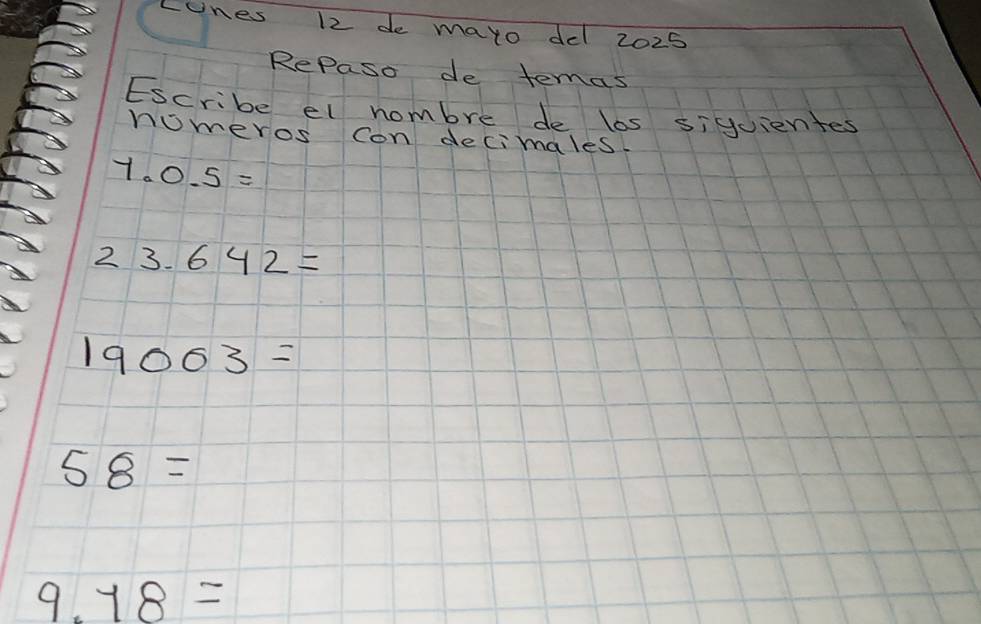 Lunes 12 de mayo del 2025
Repaso de temas
Escribe el nombre de los siguientes
números con decimales.
1.0.5=
23.642=
19003=
58=
9.18=